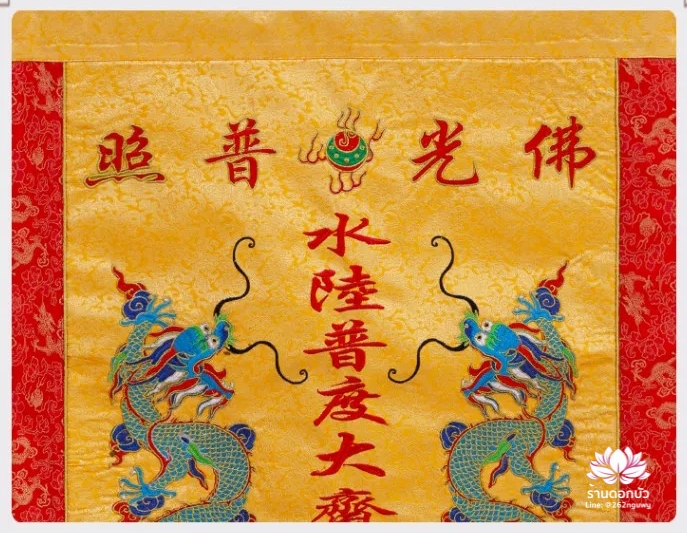 佛光普照
水陸普度大齋
ร้านดอกบัว
Line: @262nguwy